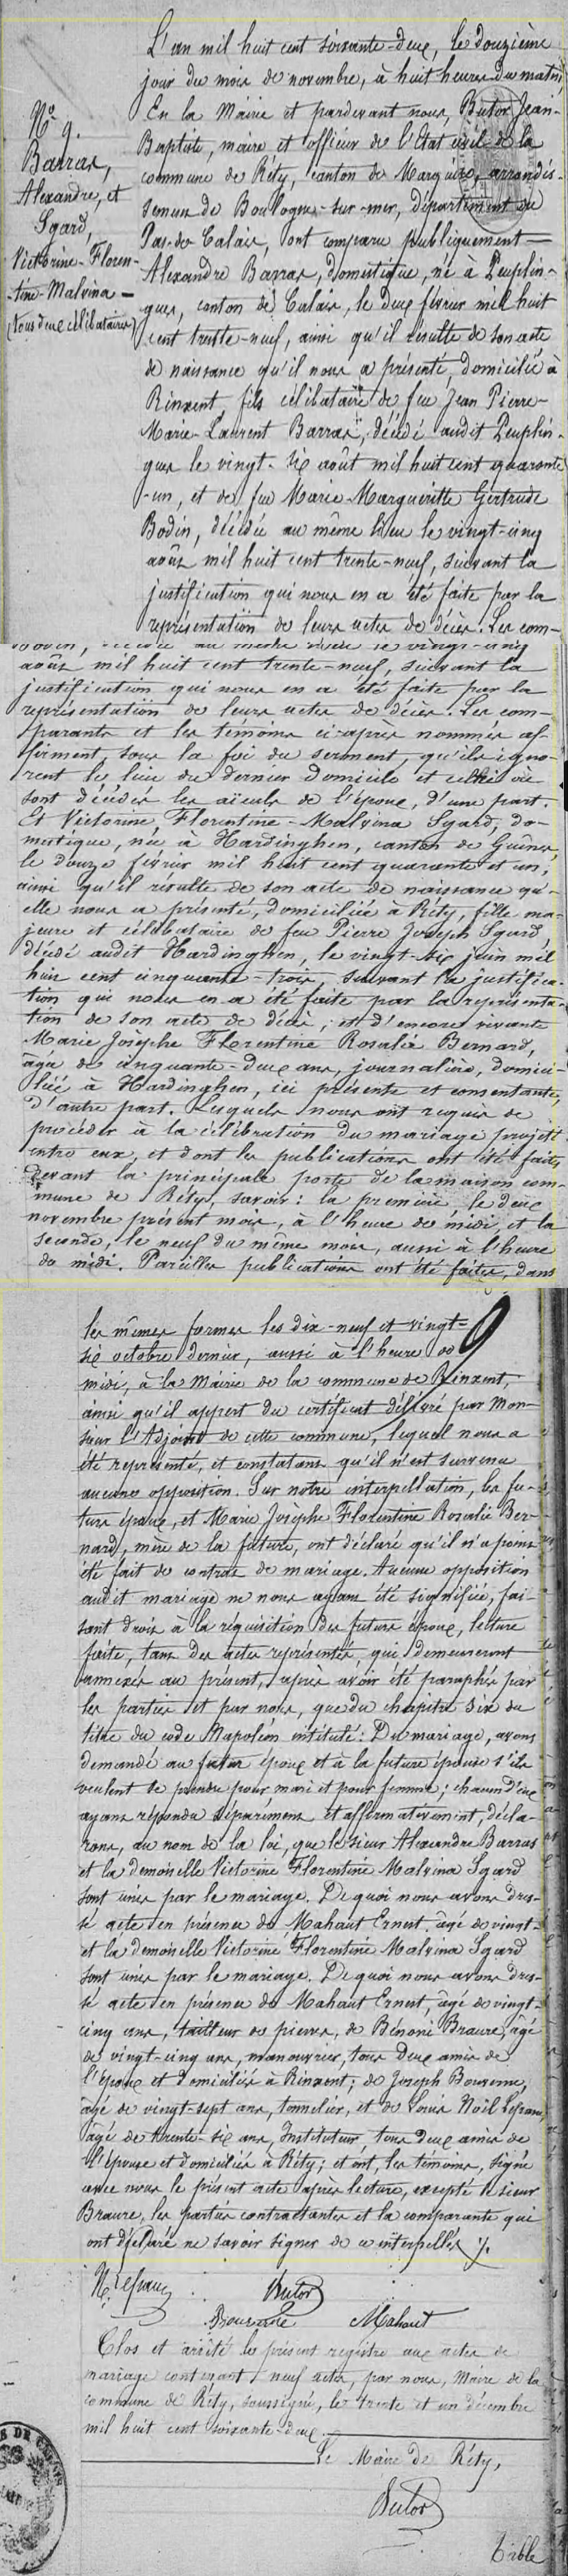 L'an mil huit cent soixante-deux, le douzième
jour du mois de novembre, à huit heures du matin,
En la Mairie et pardevant nous, Butor Jean-
Baptiste, maire et officier de l'Etat civil de la
commune de Réty, canton de Marquise, arrondis-
sement de Boulogne-sur-mer, département du
Pas-de-Calais, sont comparu publiquement
Nº 9.
Barras,
Alexandre, et
Sgard,
Victorine-Floren-
-tine-Malvina
(tous deux célibataires)
Alexandre Barras, domestique, né à Peuplin-
gues, canton de Calais, le deux février mil huit
cent trente-neuf, ainsi qu'il résulte de son acte
de naissance qu'il nous a présenté, domicilié à
Rinxent, fils célibataire de feu Jean Pierre-
Marie-Laurent Barras, décédé audit Peuplin-
gues le vingt-six août mil huit cent quarante
-un, et de feu Marie-Margueritte Gertrude
Bodin, décédée au même lieu le vingt-cinq
août mil huit cent trente-neuf, suivant la
justification qui nous en a été faite par la
représentation de leurs actes de décès. Les com-
août mil huit cent trente-neuf, suivant la
justification qui nous en a été faite par la
représentation de leurs actes de décès. Les com-
parants et les témoins ci-après nommés af-
firment, sous la foi du serment, qu'ils igno-
rent le lieu du dernier domicile et celui où
sont décédés les aïeuls de l'époux, d'une part.
Et Victorine, Florentine-Malvina Sgard, do-
mestique, née à Hardinghen, canton de Guînes,
le douze février mil huit cent quarante et un,
ainsi qu'il résulte de son acte de naissance qu'-
elle nous a présenté, domiciliée à Réty, fille ma-
jeure et célibataire de feu Pierre Joseph Sgard,
décédé audit Hardinghen, le vingt-six juin mil
huit cent cinquante-trois, suivant la justifica-
tion qui nous en a été faite par la représenta-
tion de son acte de décès; et d'encore vivante
Marie Josèphe Florentine Rosalie Bernard,
âgée de cinquante-deux ans, journalière, domici-
liée à Hardinghen, ici présente et consentante,
d'autre part. Lesquels nous ont requis de
procéder à la célébration du mariage projeté
entre eux, et dont les publications ont été faites
devant la principale porte de la maison com-
mune de Réty, savoir: la première, le deux
novembre présent mois, à l'heure de midi, et la
seconde, le neuf du même mois, aussi à l'heure
de midi. Pareilles publications ont été faites, dans
9
les mêmes formes les dix-neuf et vingt-
six octobre dernier, aussi à l'heure de
midi, à la Mairie de la commune de Rinxent,
ainsi qu'il appert du certificat délivré par Mon-
sieur l'Adjoint de cette commune, lequel nous a
été représenté, et constatant qu'il n'est survenu
aucune opposition. Sur notre interpellation, les fu-
turs époux, et Marie Josèphe Florentine Rosalie Ber-
nard, mère de la future, ont déclaré qu'il n'a point
été fait de contrat de mariage. Aucune opposition
audit mariage ne nous ayant été signifiée, fai-
sant droit à la réquisition des futurs époux, lecture
faite, tant des actes représentés, qui demeureront
annexés au présent, après avoir été paraphés par
les parties et par nous, que du chapitre six du
titre du code Napoléon intitulé: Du mariage, avons
demandé au futur époux et à la future épouse s'ils
veulent se prendre pour mari et pour femme; chacun d'eux
ayant répondu séparément et affirmativement, décla-
rons, au nom de la loi, que le sieur Alexandre Barras
et la demoiselle Victorine Florentine Malvina Sgard
sont unis par le mariage. De quoi nous avons dres-
sé acte en présence de Mahaut Ernest, âgé de vingt-
et la demoiselle Victorine Florentine Malvina Sgard
sont unis par le mariage. De quoi nous avons dres-
sé acte en présence de Mahaut Ernest, âgé de vingt-
cinq ans, tailleur de pierres, de Bénoni Braure, âgé
de vingt-cinq ans, manouvrier, tous deux amis de
l'époux et domiciliés à Rinxent; de Joseph
âgé de vingt-sept ans, tonnelier, et de Louis Noël Lefranc,
âgé de trente-six ans, Instituteur, tous deux amis de
l'épouse et domiciliés à Réty; et ont, les témoins, signé
avec nous le présent acte après lecture, excepté le sieur
Braure, les parties contractantes et la comparante qui
ont déclaré ne savoir signer de ce interpellés ./.
N. Lefranc Butor
Mahaut
Clos et arrêté le présent registre aux actes de
mariage contenant neuf actes, par nous, Maire de la
commune de Réty, soussigné, le trente et un décembre
mil huit cent soixante-deux.
Le Maire de Réty,
Butor
Table